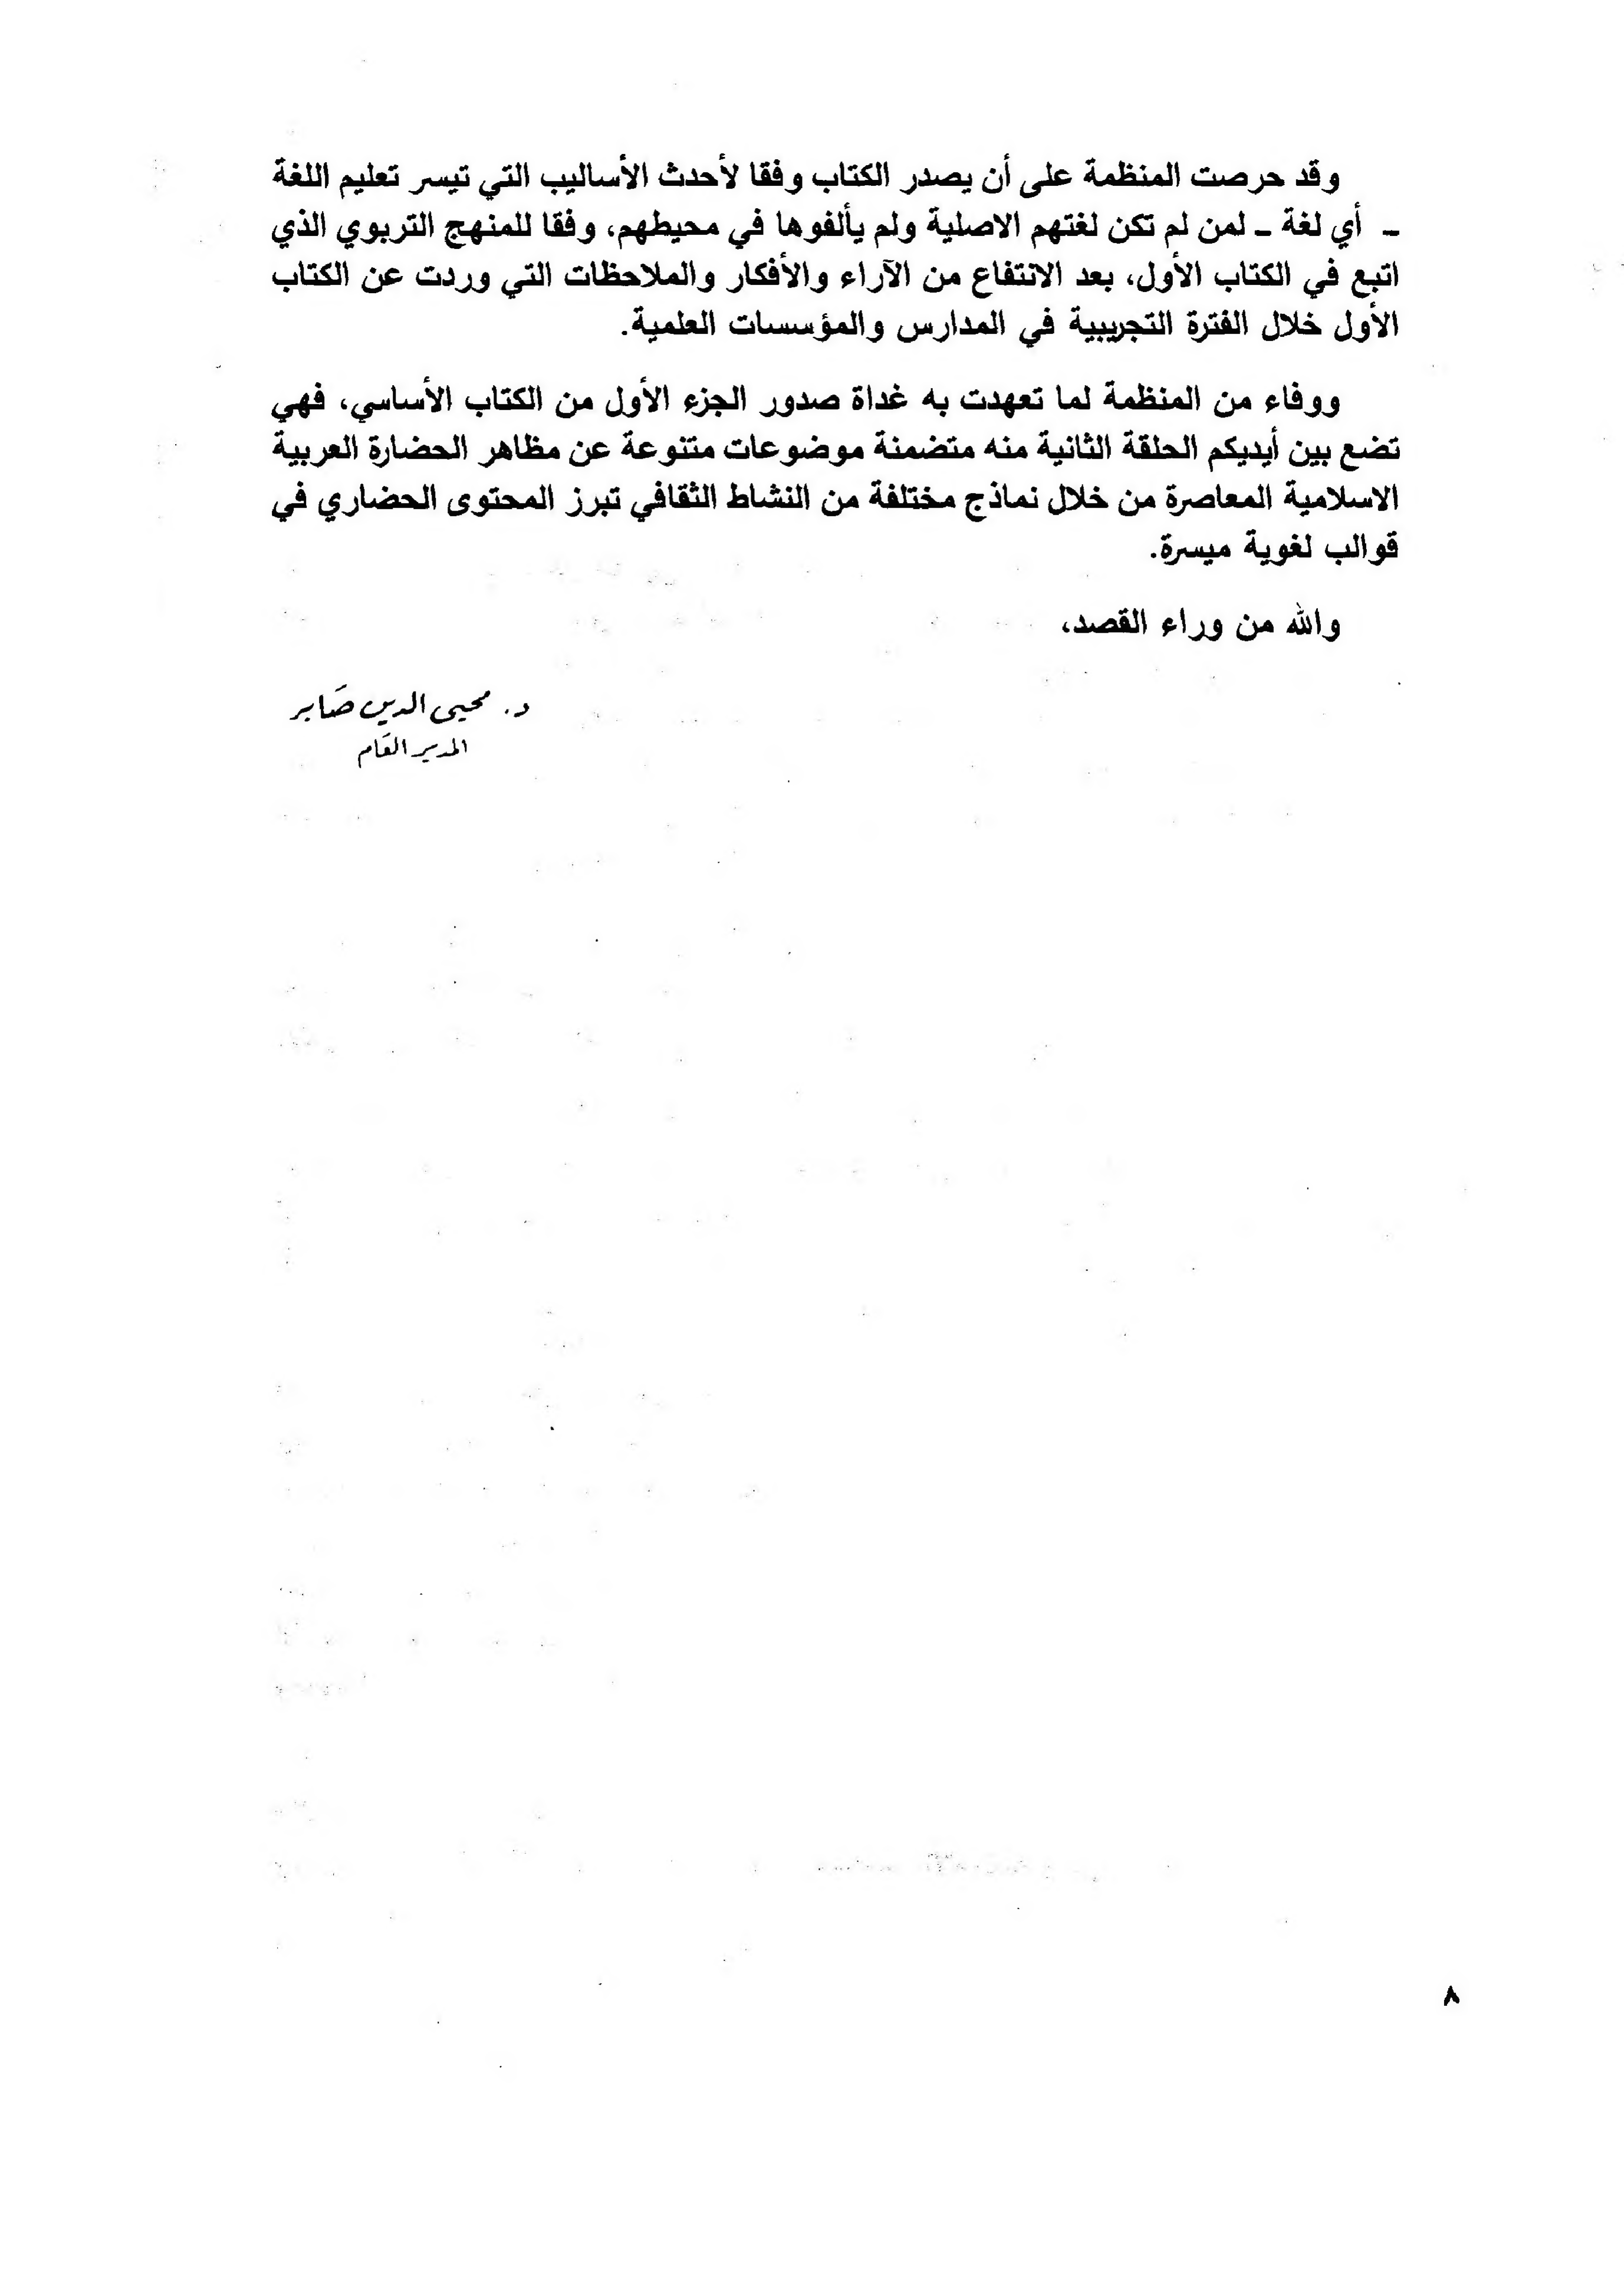 وقد حرصت المنظمة على أن يصدر الكتاب وفقا لأحدث الأساليب التي تيسر تعليم اللغة
ـ أي لغة ـ لمن لم تكن لغتهم الاصلية ولم يألفوها في محيطهم، وفقا للمنهج التربوي الذي
اتبع في الكتاب الأول، بعد الانتفاع من الآراء والأفكار والملاحظات التي وردت عن الكتاب
الأول خلال الفترة التجريبية في المدارس والمؤسسات العلمية.
ووفاء من المنظمة لما تعهدت به غداة صدور الجزء الأول من الكتاب الأساسي، فهي
تضع بين أيديكم الحلقة الثانية منه متضمنة موضوعات متنوعة عن مظاهر الحضارة العربية
الاسلامية المعاصرة من خلال نماذج مختلفة من النشاط الثقافي تبرز المحتوى الحضاري في
قوالب لغوية ميسرة.
والله من وراء القصد،
د. محيى الدين صَابر
المدير العَام
٨